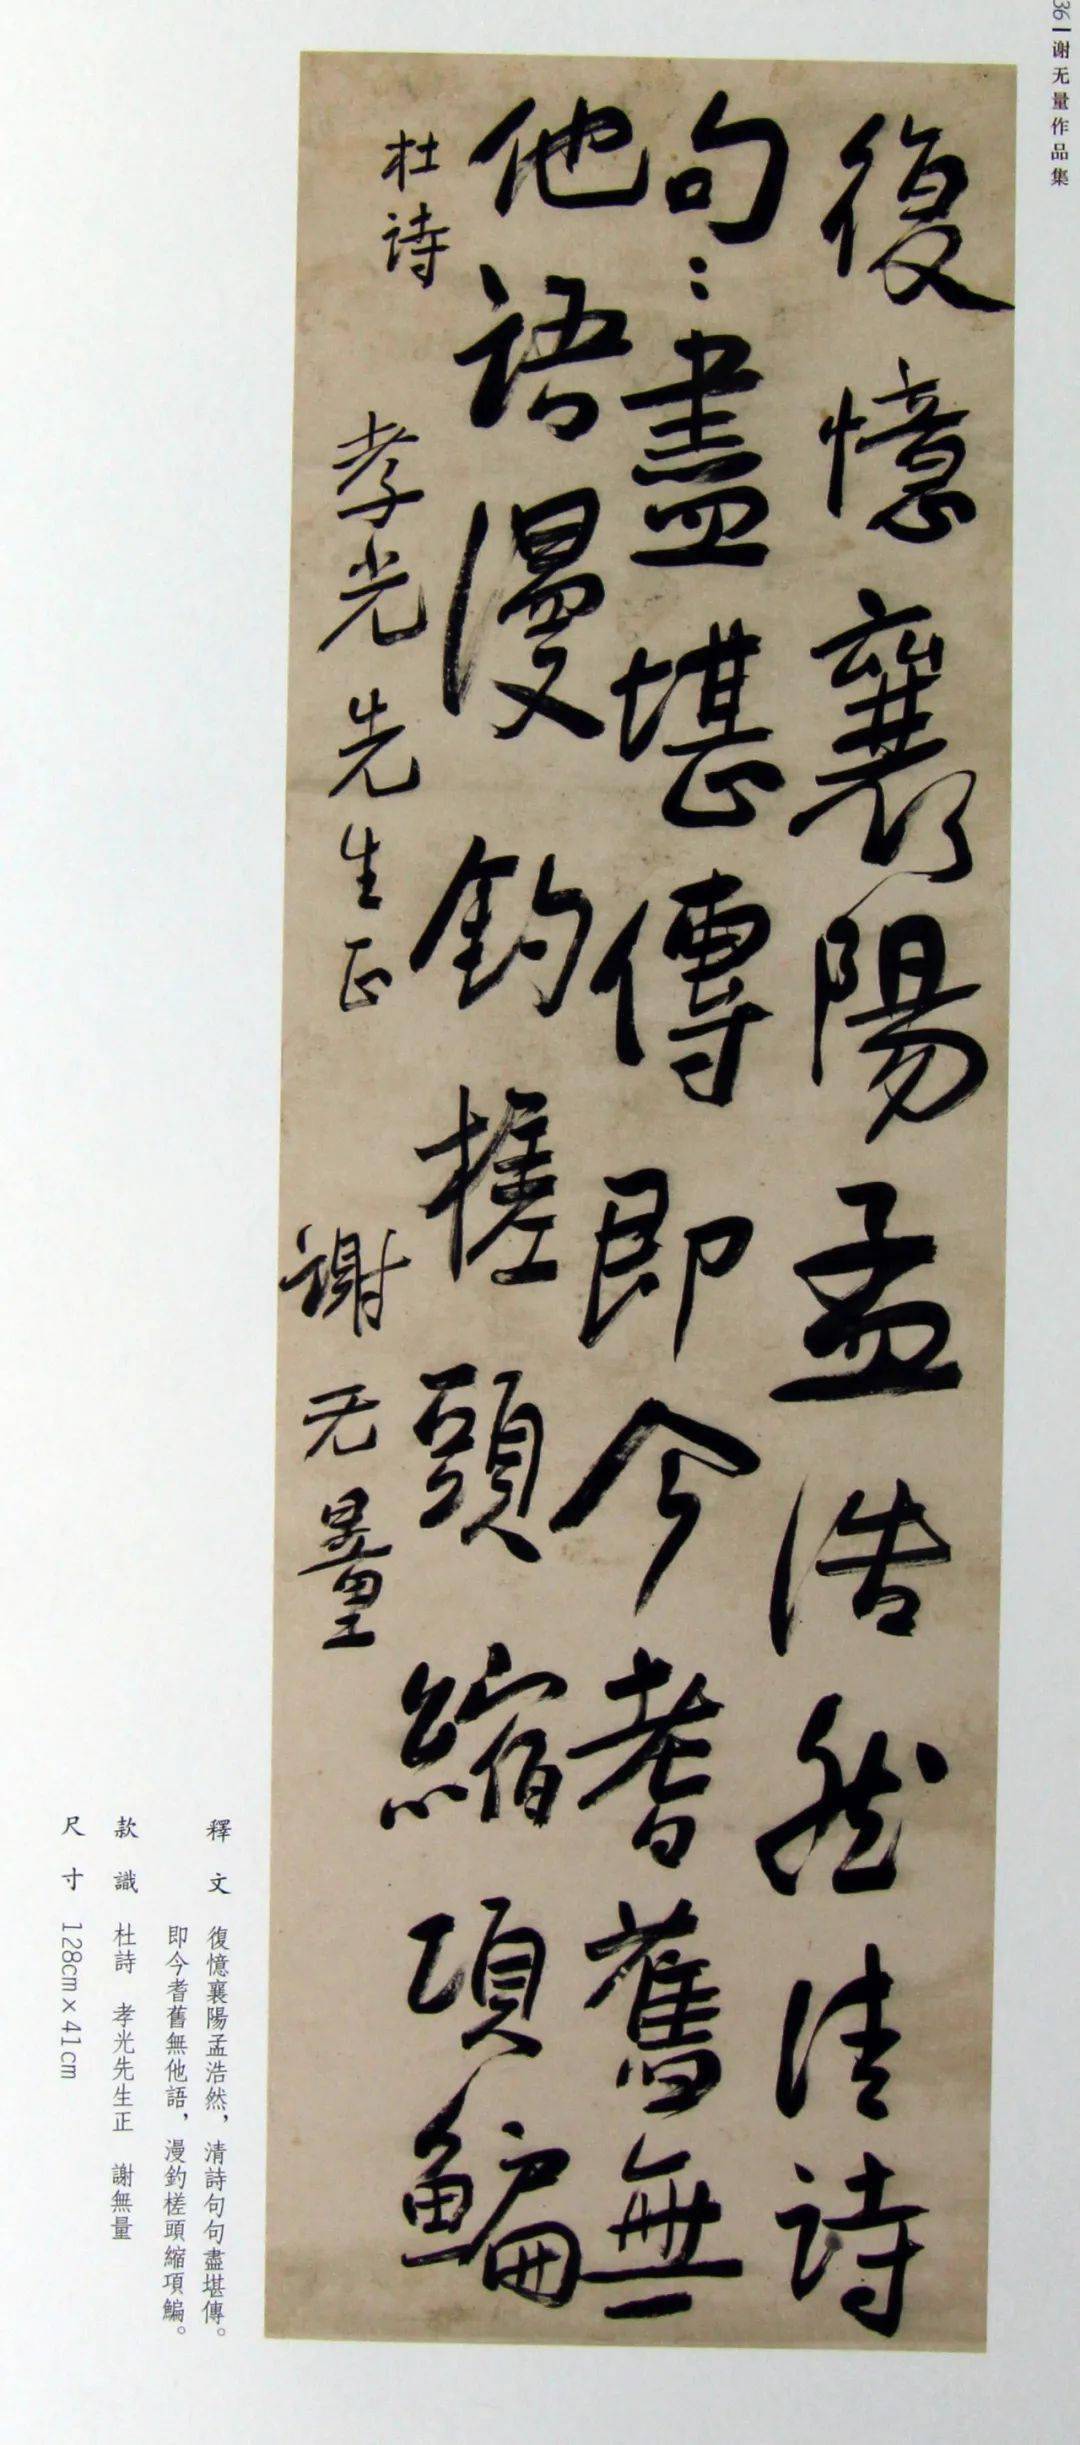 36 谢无量作品集
復憶襄陽孟浩然清詩
句〻盡堪傳即今耆舊無
他語漫釣槎頭縮項鯿
杜诗
孝光先生正
謝无量
釋文 復憶襄陽孟浩然，清詩句句盡堪傳。
即今耆舊無他語，漫釣槎頭縮項鯿。
款識 杜詩 孝光先生正 謝無量
尺寸 128cm×41cm